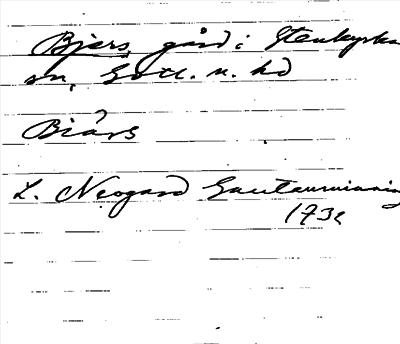 Bjers, gård i Stenkyrka
sn, Gotl. n. hd
Biårs
L. Neogard Gautauminning
1732